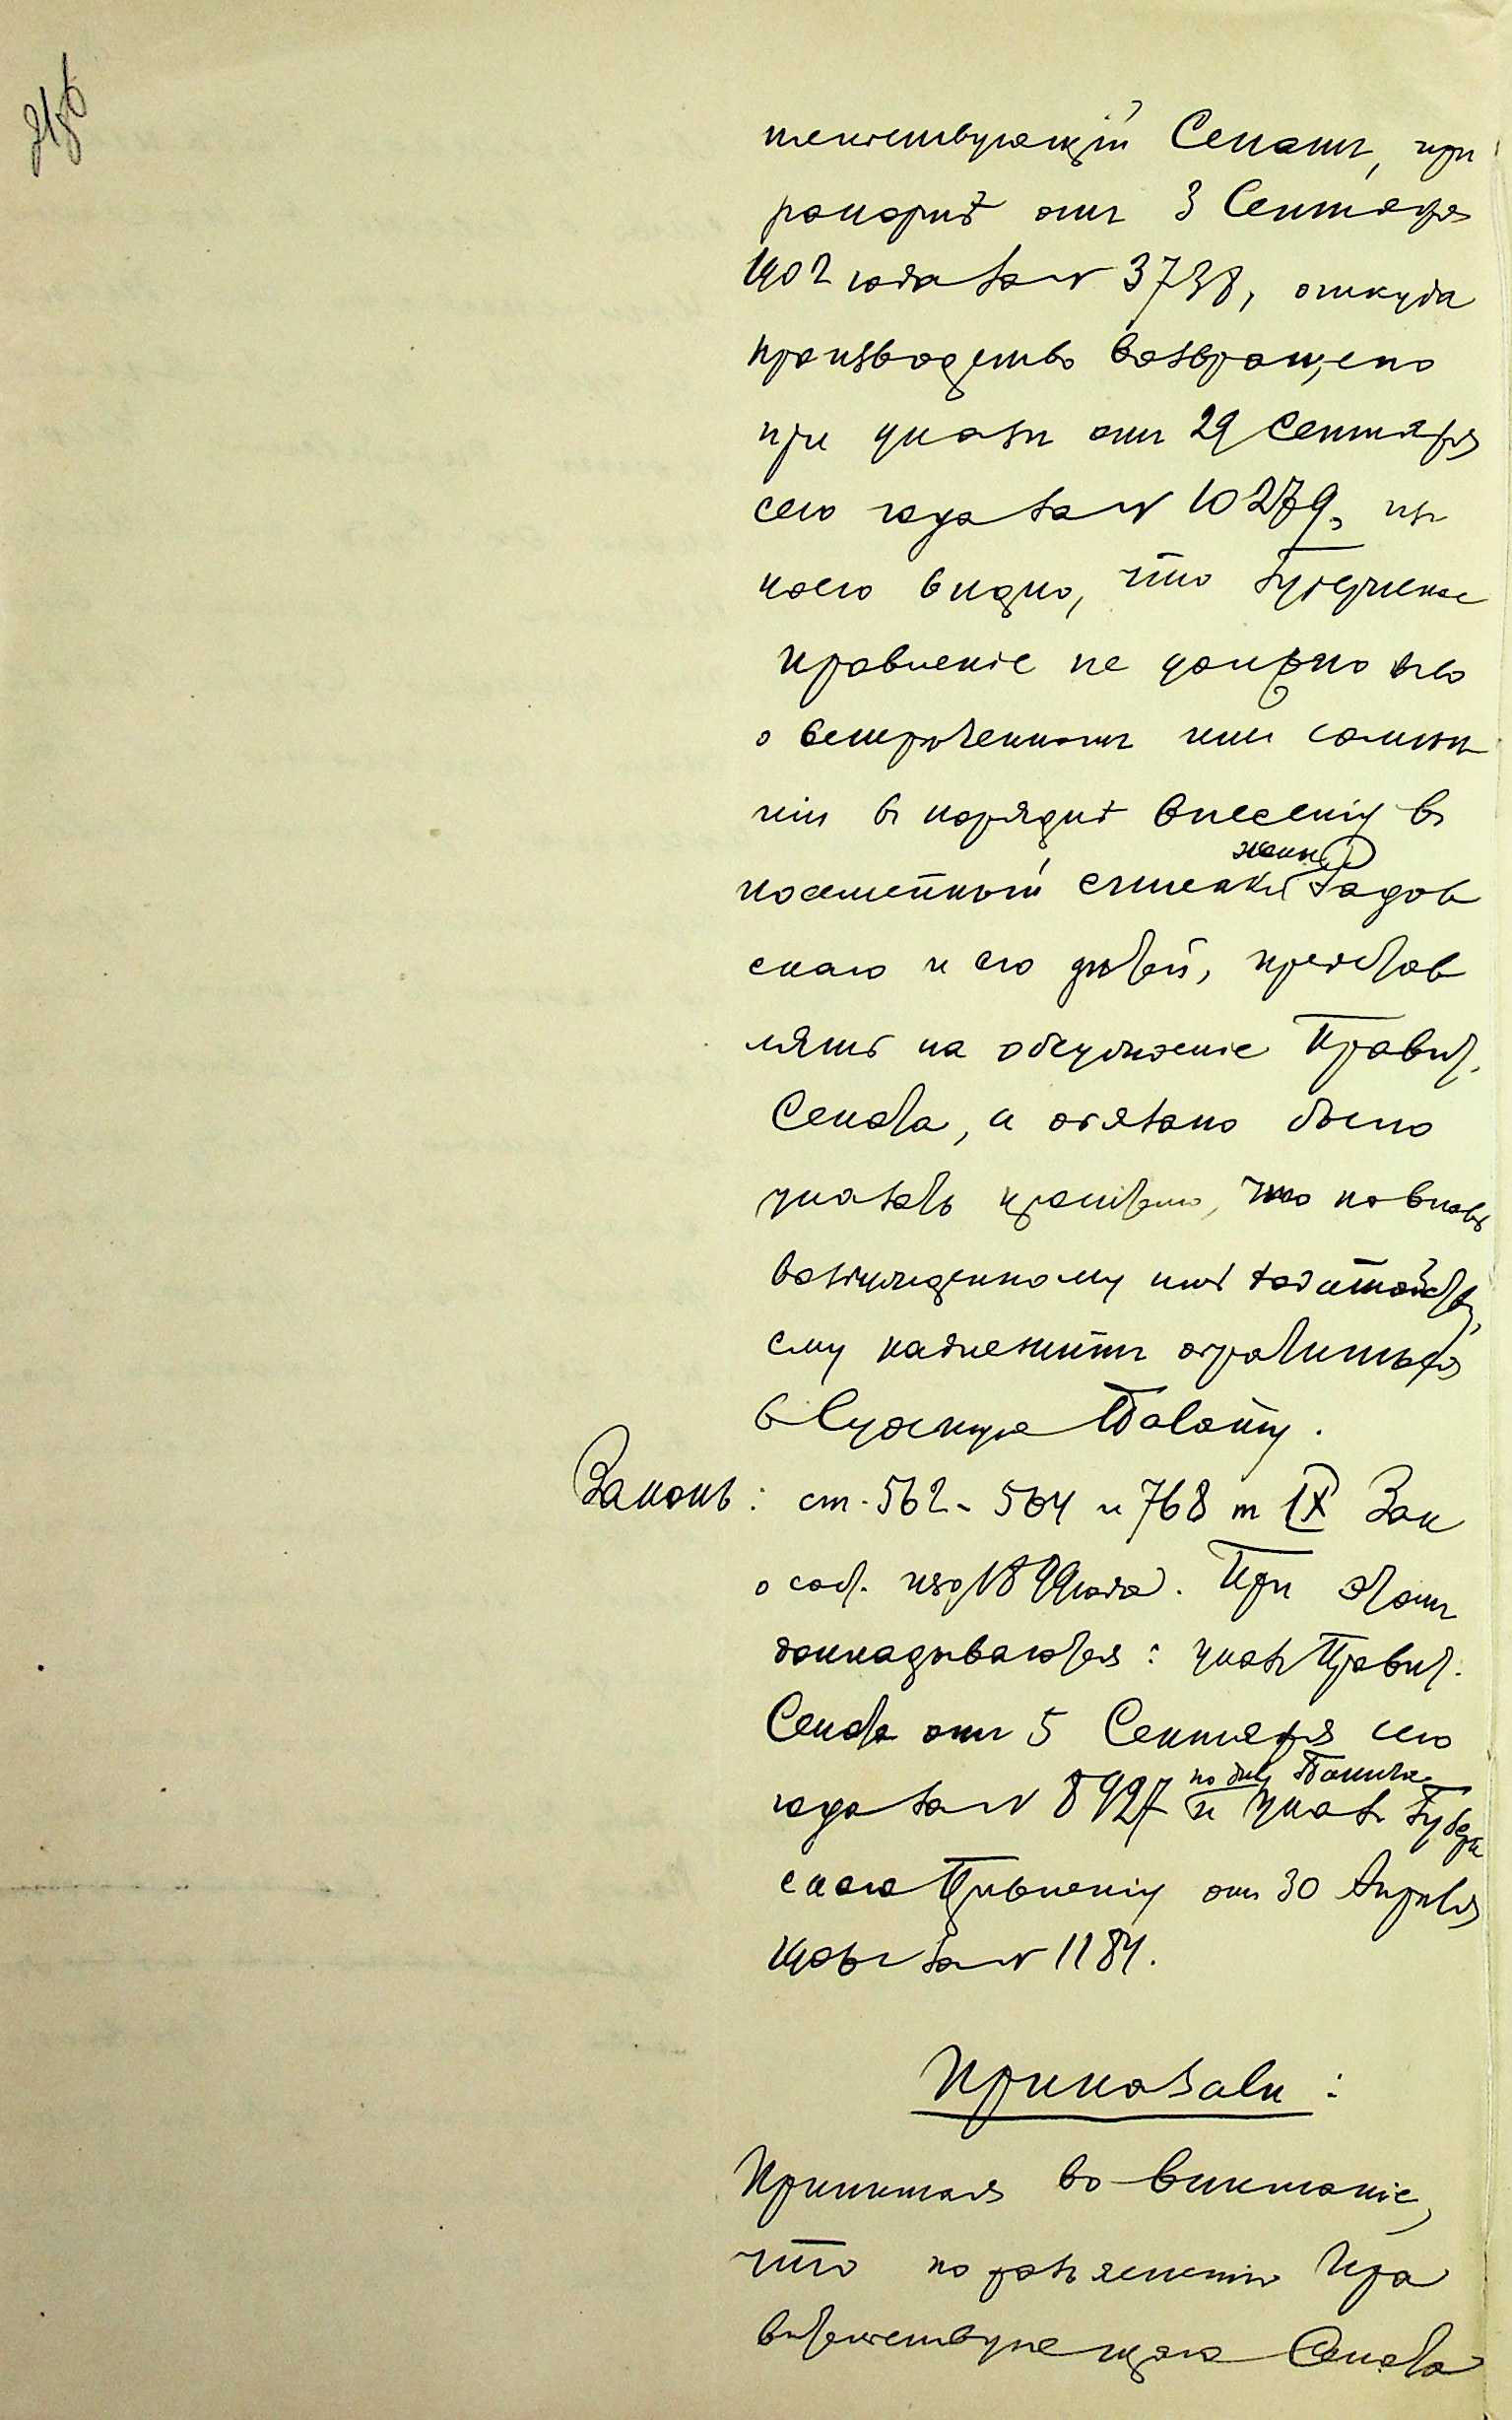 тельствующій Сенатъ, при
рапортѣ отъ 3 Сентября
1902 года за N 3738, откуда
производство возвращено
при указѣ отъ 29 Сентября
сего года за N 10279, изъ
коего видно, что Губернское
Правленіе не должно было
о встрѣченномъ имъ сомнѣ
ніи въ порядкѣ внесенія въ
посемейный списокъ жены Садов
скаго и его дѣтей, представ
лять на обсужденіе Правит.
Сената, а обязано было
указать просителю, что по вновь
возбужденному имъ ходатайству,
ему надлежитъ обратиться
въ Судебную Палату.
Законъ: ст. 562 - 564 и 768 т IX Зак
о сост. изд 1899 года. При этомъ
докладываются: указъ Правит.
Сената отъ 5 Сентября сего
по дѣлу
года за N 8927 и указъ Губерн
скаго Правленія отъ 30 Апрѣля
за N 1184.
Приказали:
Принимая во вниманіе,
что по разъясненію Пра
вительствующаго Сената